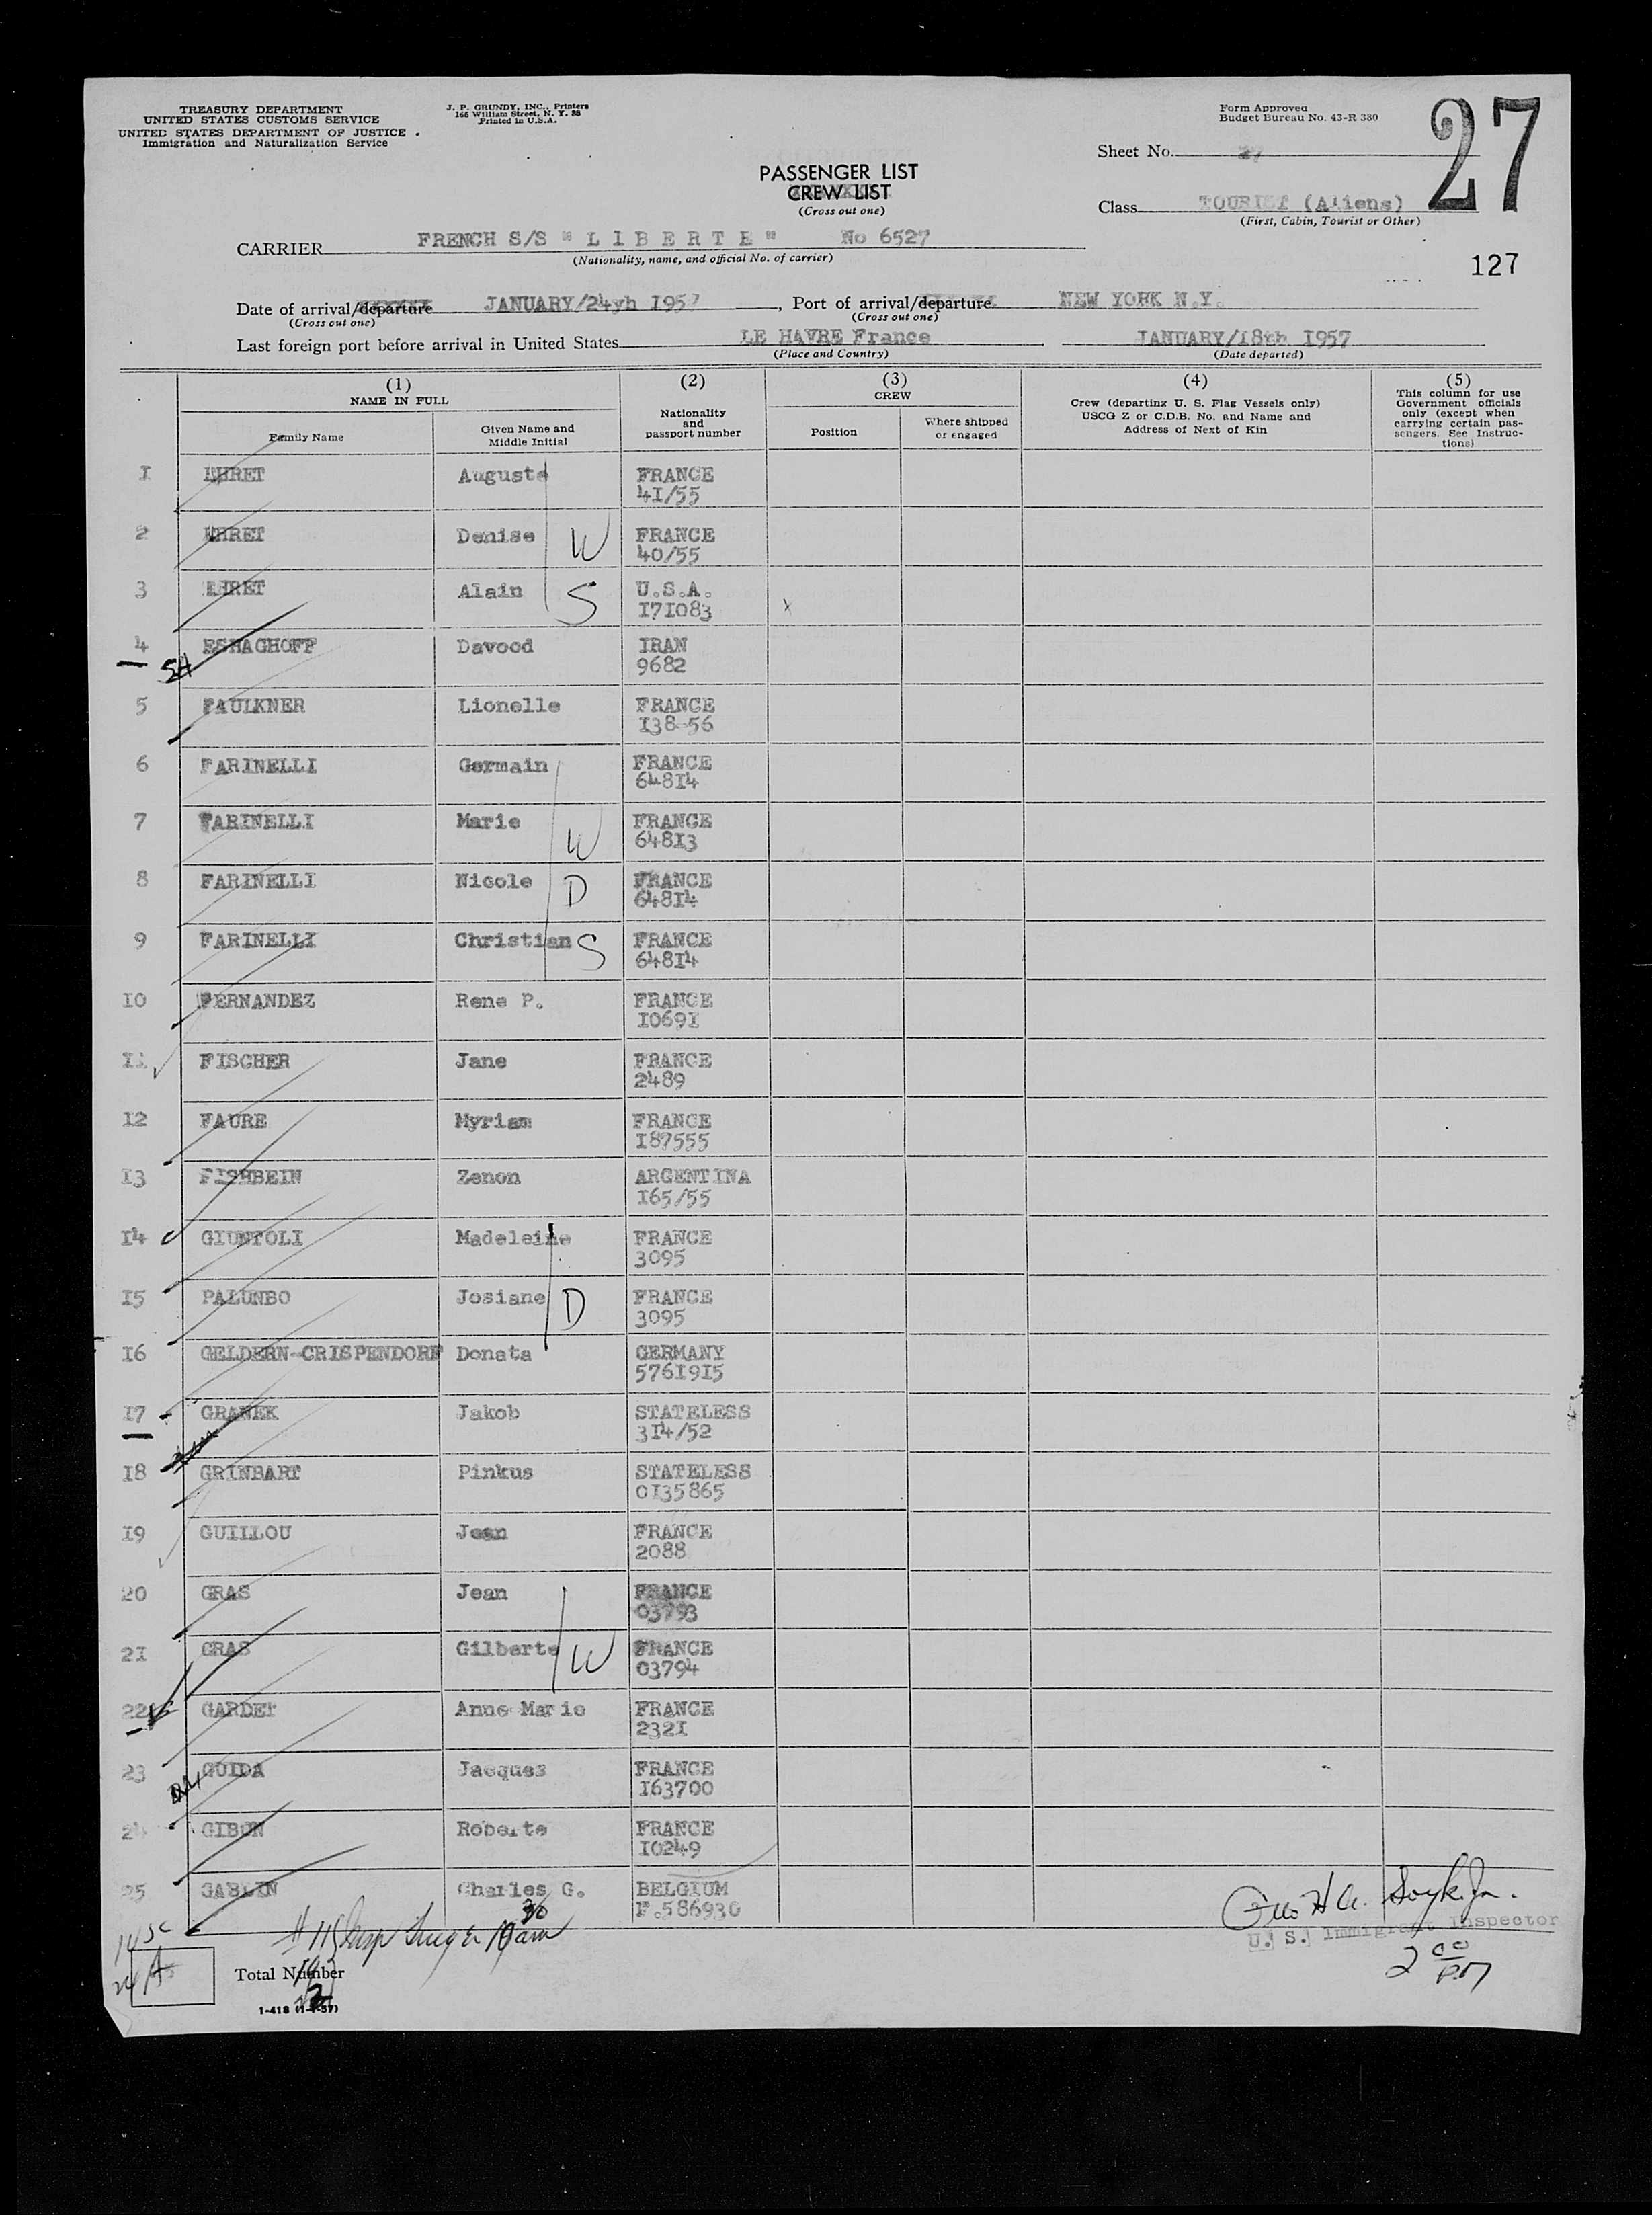 TREASURY DEPARTMENT
UNITED STATES CUSTOMS SERVICE
UNITED STATES DEPARTMENT OF JUSTICE
Immigration and Naturalization Service
J. P. GRUNDY, INC., Printers
166 William Street, N. Y. 38
Printed in U.S.A.
Form Approved
Budget Bureau No. 43-R 380
27
Sheet No. 27
PASSENGER LIST
CREW LIST
(Cross out one)
Class TOURIST (Aliens)
(First, Cabin, Tourist or Other)
CARRIER FRENCH S/S " L I B E R T E " No 6527
(Nationality, name, and official No. of carrier)
127
Date of arrival/departure JANUARY/24yh I957, Port of arrival/departure NEW YORK N.Y.
(Cross out one) (Cross out one)
Last foreign port before arrival in United States LE HAVRE France JANUARY/I8th I957
(Place and Country) (Date departed)
(1) NAME IN FULL
Family Name
Given Name and Middle Initial
(2) Nationality and passport number
(3) CREW
Position
Where shipped or engaged
(4) Crew (departing U. S. Flag Vessels only) USCG Z or C.D.B. No. and Name and Address of Next of Kin
(5) This column for use Government officials only (except when carrying certain passengers. See Instructions)
I EHRET Auguste FRANCE
4I/55
2 EHRET Denise W FRANCE
40/55
3 EHRET Alain S U.S.A.
I7I083 x
4 ESHAGHOFF Davood IRAN
9682
5 FAULKNER Lionelle FRANCE
I38-56
6 FARINELLI Germain FRANCE
648I4
7 FARINELLI Marie W FRANCE
648I3
8 FARINELLI Nicole D FRANCE
648I4
9 FARINELLI Christian S FRANCE
648I4
IO FERNANDEZ Rene P. FRANCE
I069I
II FISCHER Jane FRANCE
2489
I2 FAURE Myriam FRANCE
I87555
I3 FISHBEIN Zenon ARGENTINA
I65/55
I4 GIUNTOLI Madeleine FRANCE
3095
I5 PALUNBO Josiane D FRANCE
3095
I6 GELDERN-CRISPENDORF Donata GERMANY
576I9I5
I7 GRANEK Jakob STATELESS
3I4/52
I8 GRINBART Pinkus STATELESS
0I35865
I9 GUILLOU Jean FRANCE
2088
20 GRAS Jean FRANCE
03793
2I GRAS Gilberte W FRANCE
03794
22 GARDET Anne Marie FRANCE
232I
23 GUIDA Jacques FRANCE
I63700
24 GIBON Roberte FRANCE
I0249
25 GABLIN Charles G. BELGIUM
F.586930
U. S. Immigrant Inspector
2 00 PM
Total Number
1-418 (1-1-57)